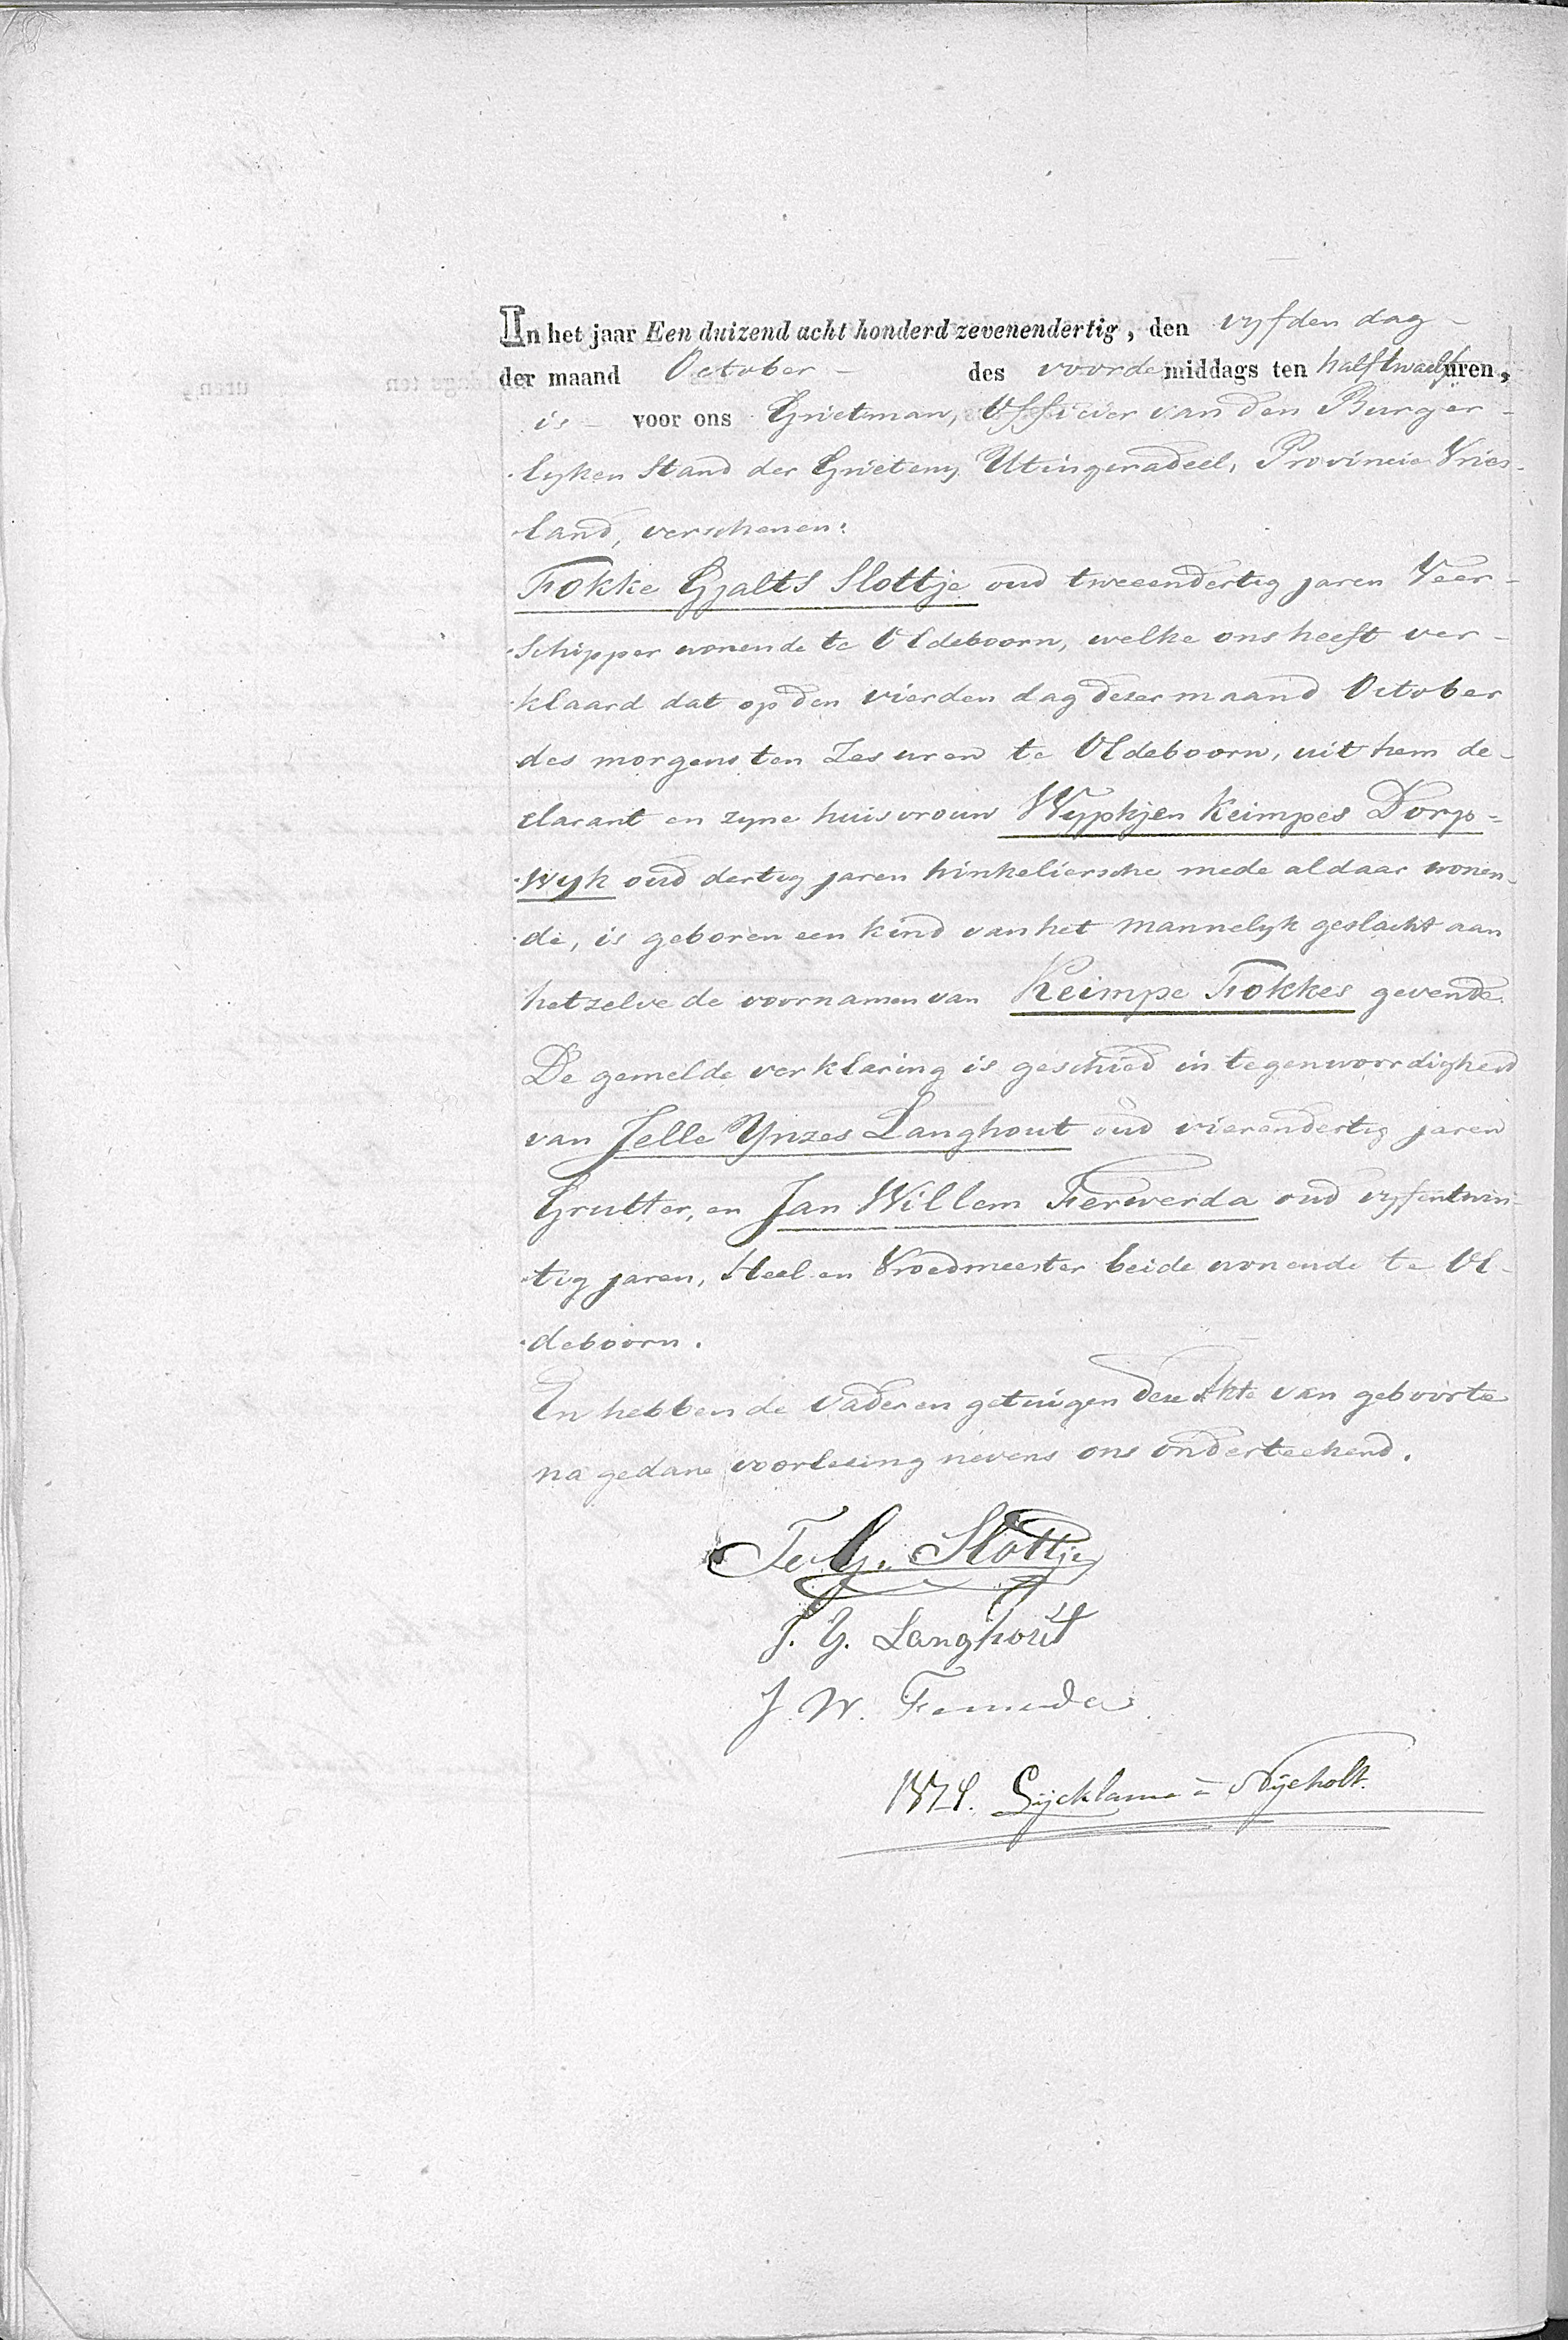 In het jaar Een duizend acht honderd zevenendertig, den vyfden dag -
der maand October - des voorde middags ten half twaelf uren,
is - voor ons Grietman, Officier van den Burger-
lyken Stand der Grieteny Utingeradeel, Provincie Vries-
land, verschenen:
Fokke Gjalts Slottje oud tweeendertig jaren Veer-
schipper wonende te Oldeboorn, welke ons heeft ver-
klaard dat op den vierden dag dezer maand October
des morgens ten zes uren te Oldeboorn, uit hem de-
clarant en zyne huisvrouw Wypkjen Keimpes Dorp=
wyk oud dertig jaren winkeliersche mede aldaar wonen-
de, is geboren een kind van het mannelyk geslacht aan
hetzelve de voornamen van Keimpe Fokkes gevende.
De gemelde verklaring is geschied in tegenwoordigheid
van Jelle Ynzes Langhout oud vierendertig jaren
Grutter, en Jan Willem Ferwerda oud vyfentwin-
tig jaren, Heel en Vroedmeester beide wonende te Ol-
deboorn.
En hebben de vader en getuigen deze Akte van geboorte
na gedane voorlezing nevens ons onderteekend.
Fe G. Slottje
J. Y. Langhout
J. W. Ferwerda
Sÿcklama à Nÿeholt.